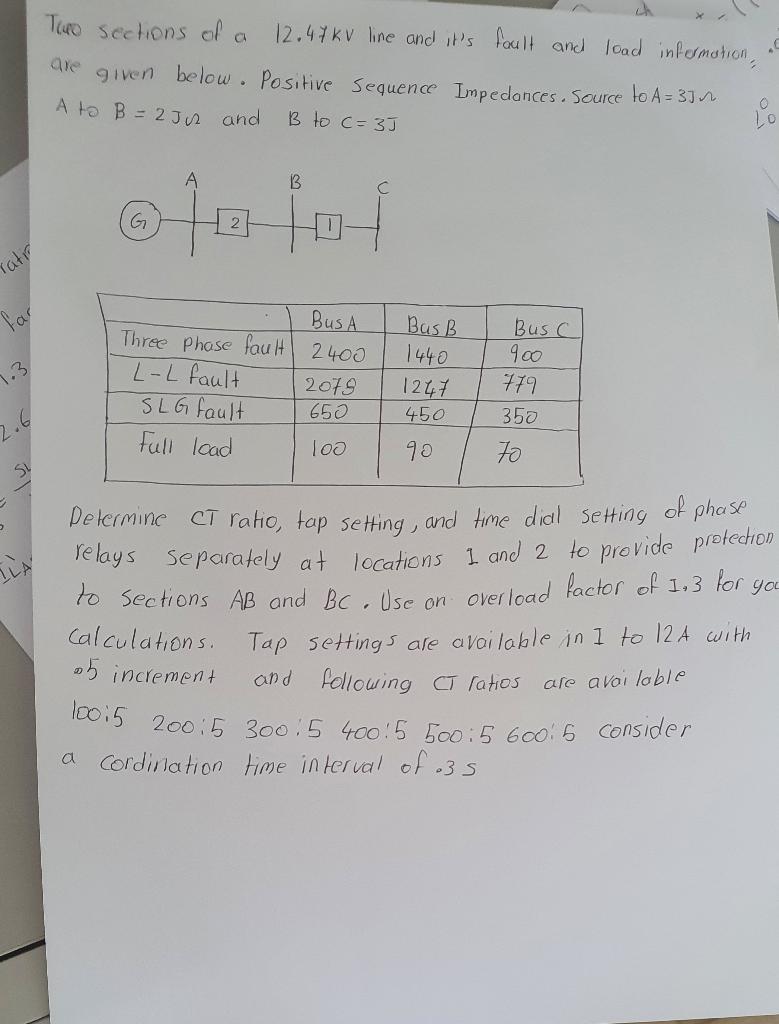 Two sections of a 12.47kV line and it's fault and load information,
are given below. Positive Sequence Impedances. Source to A = 3JΩ
A to B = 2JΩ and B to C = 3J
A B C
G 2 1
Bus A Bus B Bus C
Three phase fault 2400 1440 900
L-L fault 2078 1247 779
SLG fault 650 450 350
Full load 100 90 70
Determine CT ratio, tap setting, and time dial setting of phase
relays separately at locations 1 and 2 to provide protection
to sections AB and BC. Use on overload factor of 1.3 for you
calculations. Tap settings are available in 1 to 12A with
.5 increment and following CT ratios are available
100:5 200:5 300:5 400:5 500:5 600:5 consider
a cordination time interval of .3 s
1.3
2.6